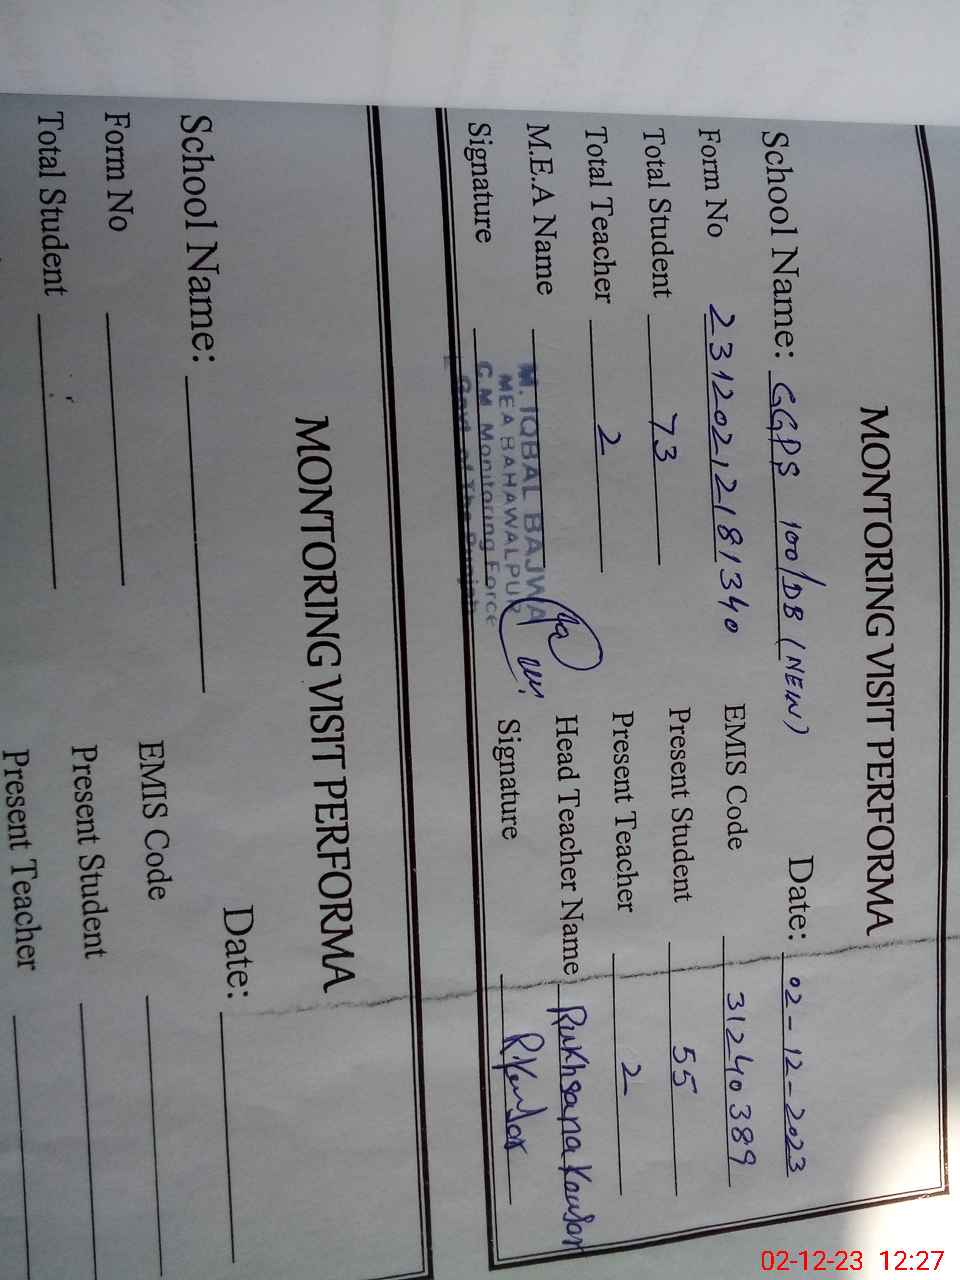 MONTORING VISIT PERFORMA
School Name: GGPS 100/DB (NEW) Date: 02-12-2023
Form No 23120212181340 EMIS Code 31240389
Total Student 73 Present Student 55
Total Teacher 2 Present Teacher 2
M.E.A Name M. IQBAL BAJWA Head Teacher Name Rukhsana Kousar
MEA BAHAWALPUR
Signature C.M Monitoring Force Signature R.Kousar
Govt. of The Punjab
MONTORING VISIT PERFORMA
School Name: Date:
Form No EMIS Code
Total Student Present Student
Present Teacher
02-12-23 12:27